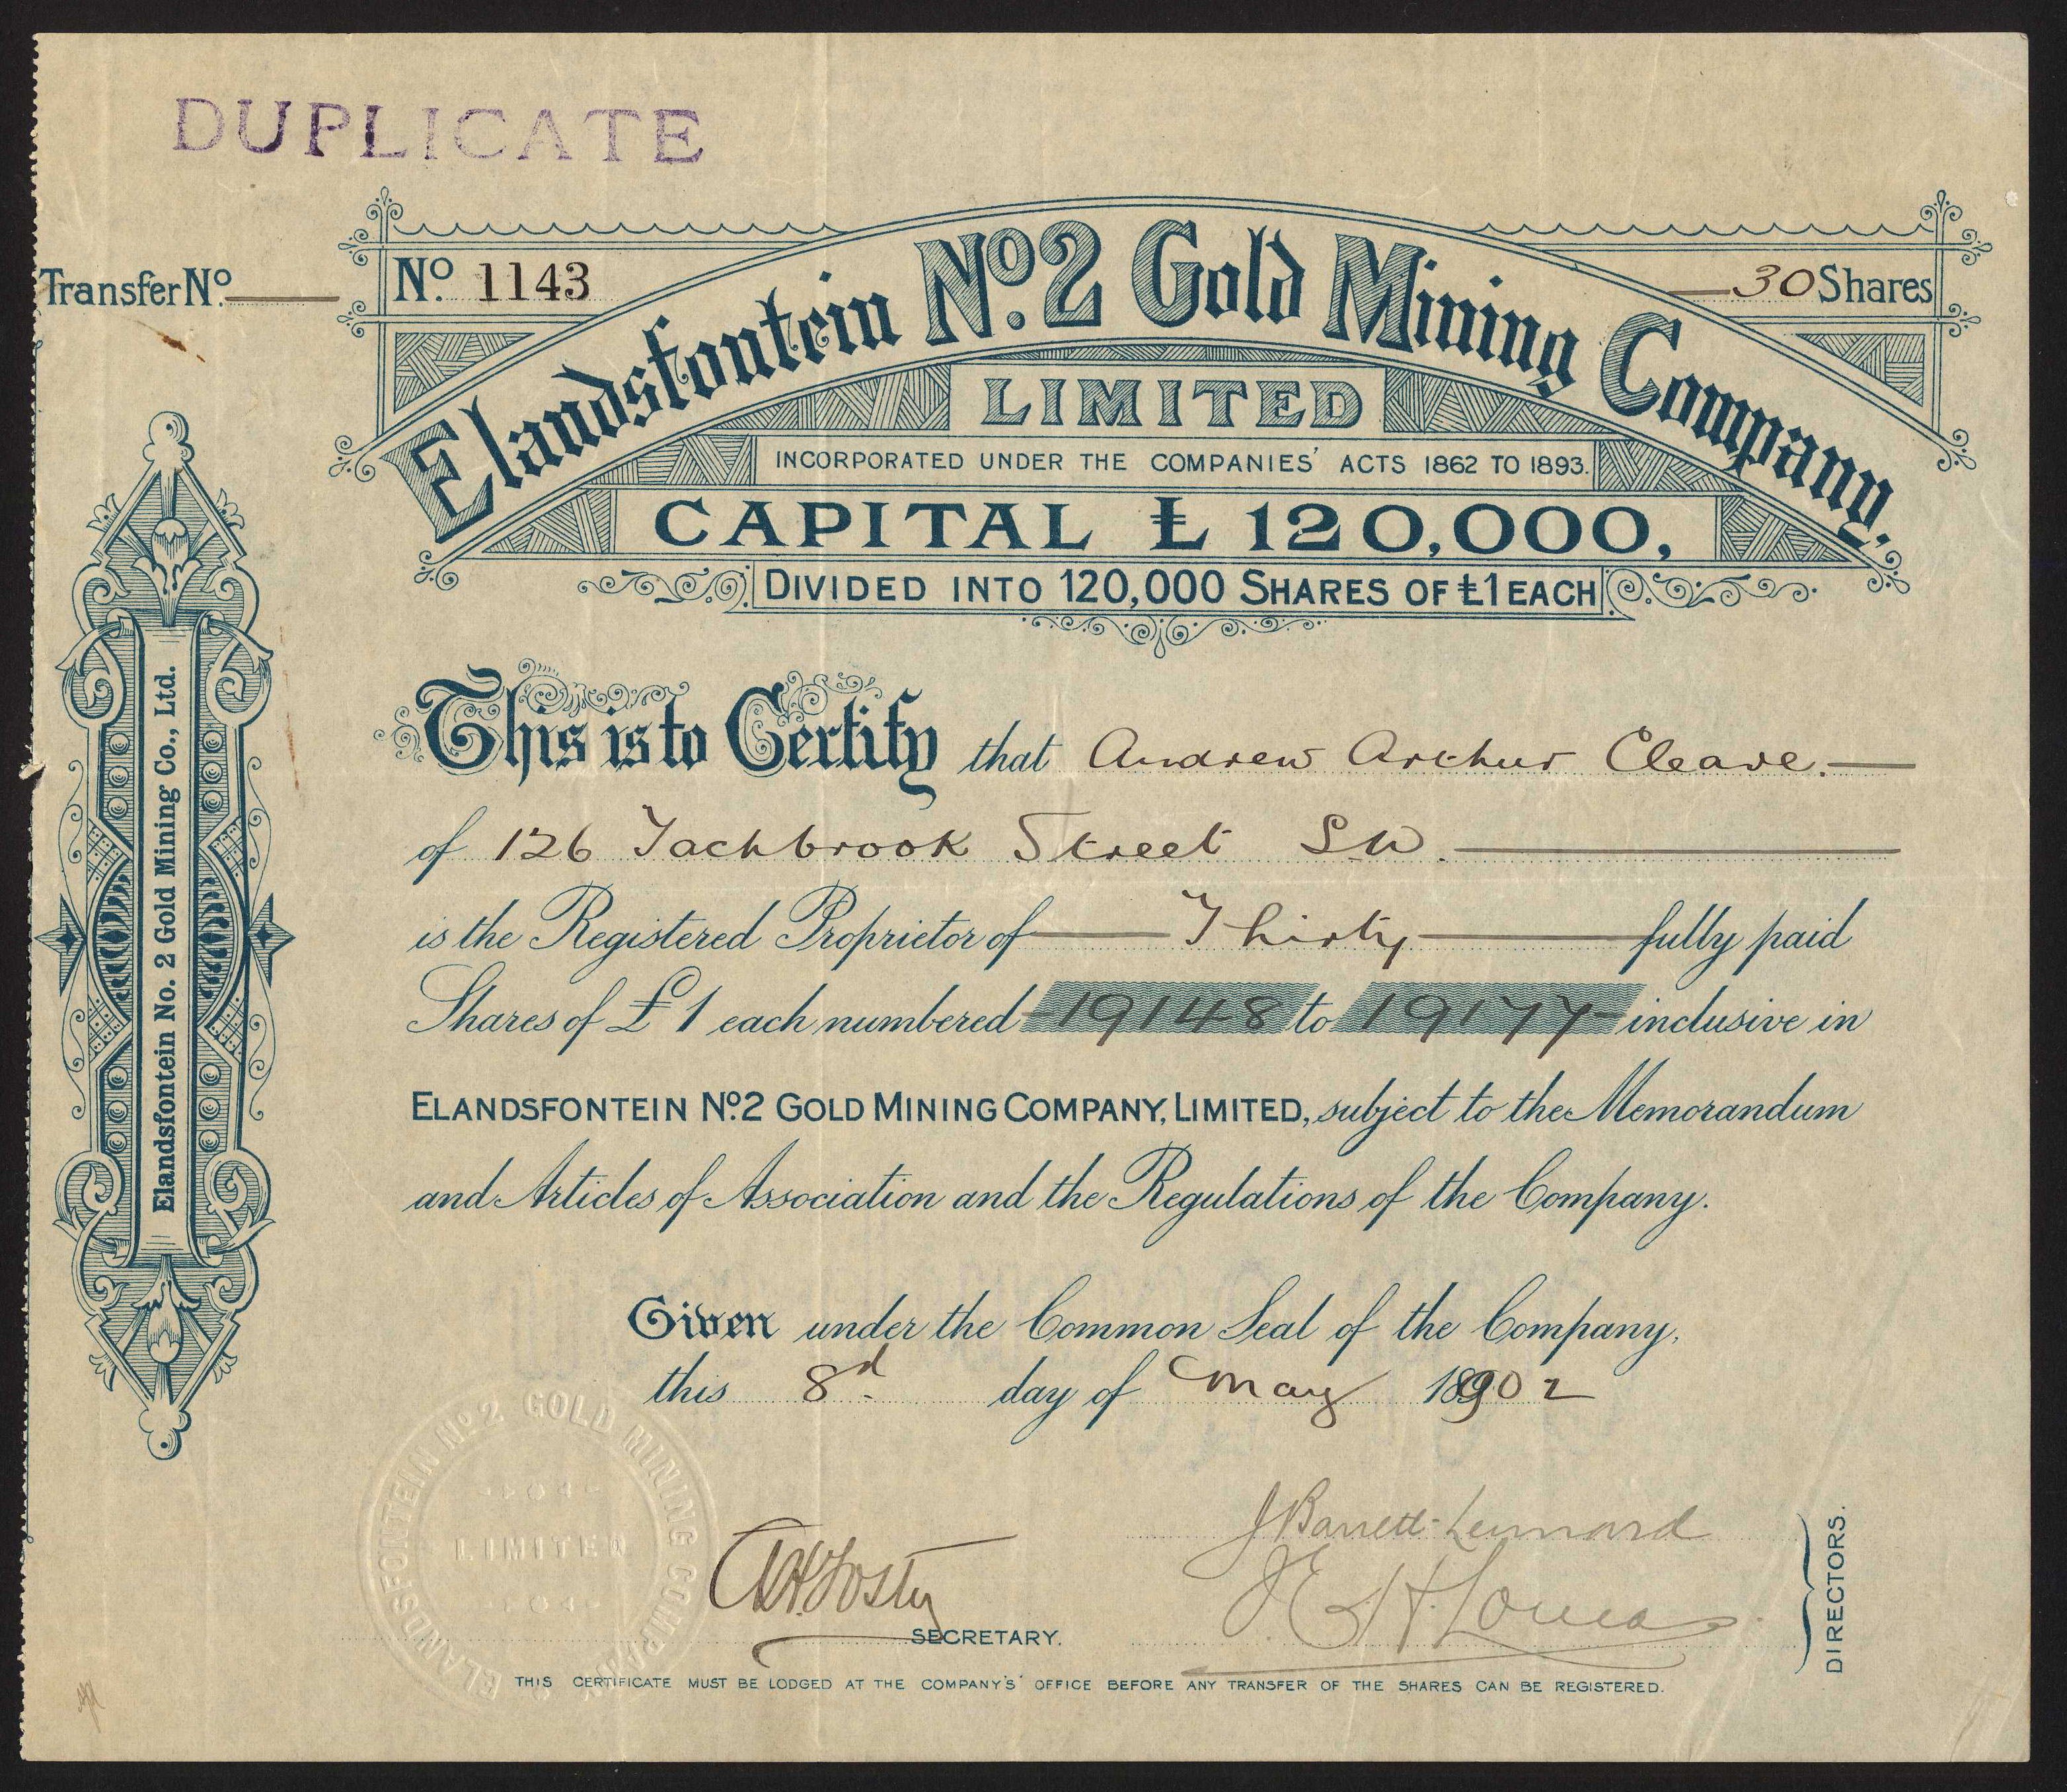 DUPLICATE
Transfer No.
No. 1143
30 Shares
Elandsfontein No. 2 Gold Mining Company,
LIMITED
INCORPORATED UNDER THE COMPANIES' ACTS 1862 TO 1893.
CAPITAL £120,000,
DIVIDED INTO 120,000 SHARES OF £1 EACH
This is to Certify that Andrew Arthur Cleave.
of 126 Tachbrook Street S.W.
is the Registered Proprietor of Thirty fully paid
Shares of £1 each numbered 19148 to 19177 inclusive in
ELANDSFONTEIN No. 2 GOLD MINING COMPANY, LIMITED, subject to the Memorandum
and Articles of Association and the Regulations of the Company.
Given under the Common Seal of the Company,
this 8d day of May 1902
Elandsfontein No. 2 Gold Mining Co., Ltd.
ELANDSFONTEIN No 2 GOLD MINING COMPANY
LIMITED
J Barrett-Lennard
SECRETARY.
DIRECTORS.
THIS CERTIFICATE MUST BE LODGED AT THE COMPANY'S' OFFICE BEFORE ANY TRANSFER OF THE SHARES CAN BE REGISTERED.